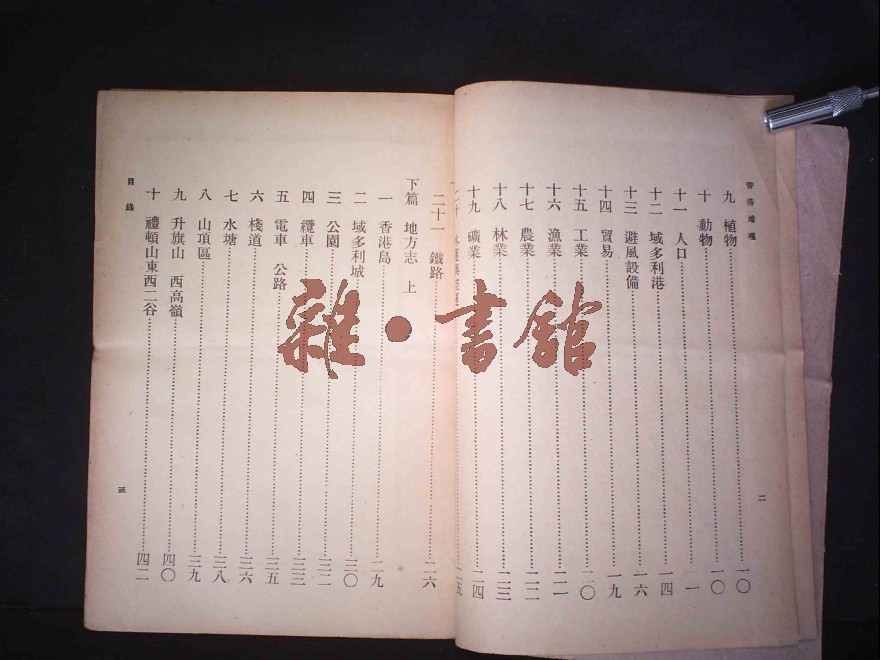 香港地理
九 植物 一〇
十 動物 一〇
十一 人口 一一
十二 域多利港 一四
十三 避風設備 一六
十四 貿易 一九
十五 工業 二〇
十六 漁業 二一
十七 農業 二二
十八 林業 二三
十九 礦業 二四
二十
二
二十一 鐵路 二六
下篇 地方志 上
一 香港島 二九
二 域多利城 三〇
三 公園 三二
四 纜車 三三
五 電車 公路 三五
六 棧道 三六
七 水塘 三八
八 山頂區 三九
九 升旗山 西高嶺 四〇
十 禮頓山東西二谷 四二
目錄
三
雜•書館